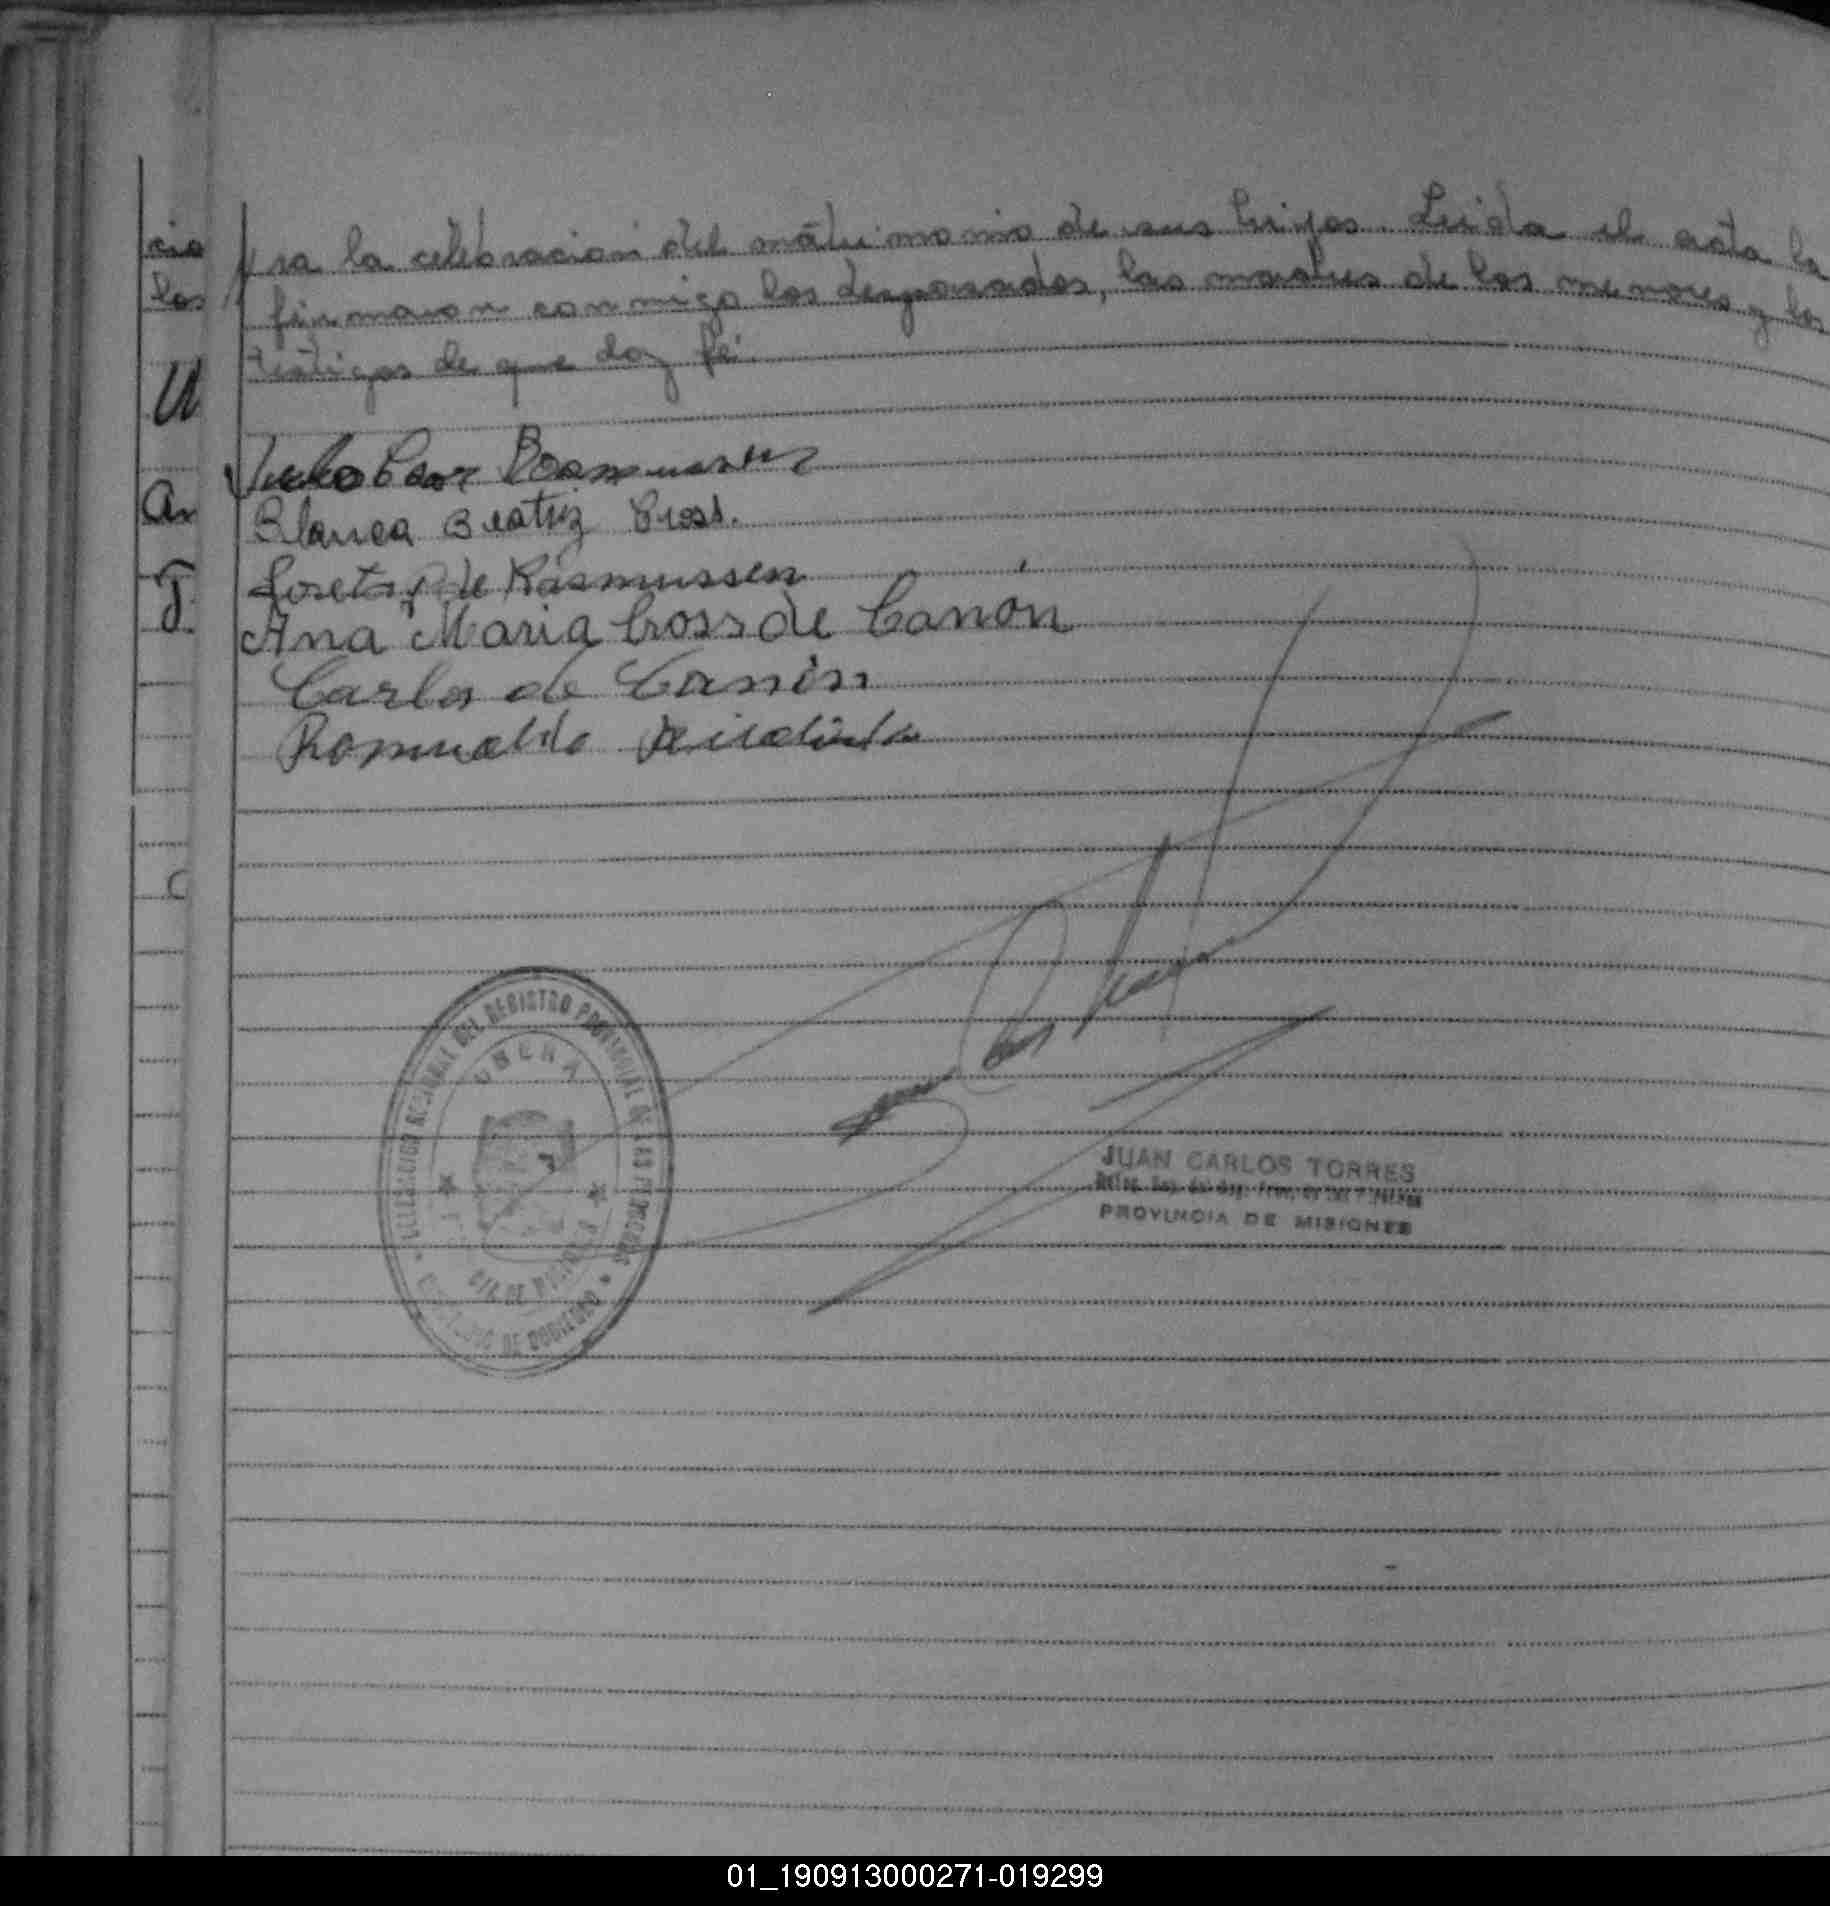 ra la celebracion del matrimonio de sus hijos. Leida el acta la
firmaron conmigo los desposados, las madres de los menores y los
testigos de que doy fé.
Julio Cesar Rasmussen
Blanca Beatriz Cross.
de Rasmussen
Ana Maria Cross de Canon
Carlos de Canin
Romualdo
DELEGACION REGIONAL DEL REGISTRO PROVINCIAL DE LAS PERSONAS
OBERA
DE MISIONES
DE GOBIERNO
JUAN CARLOS TORRES
PROVINCIA DE MISIONES
cio
los
U
an
T
C
01_190913000271-019299